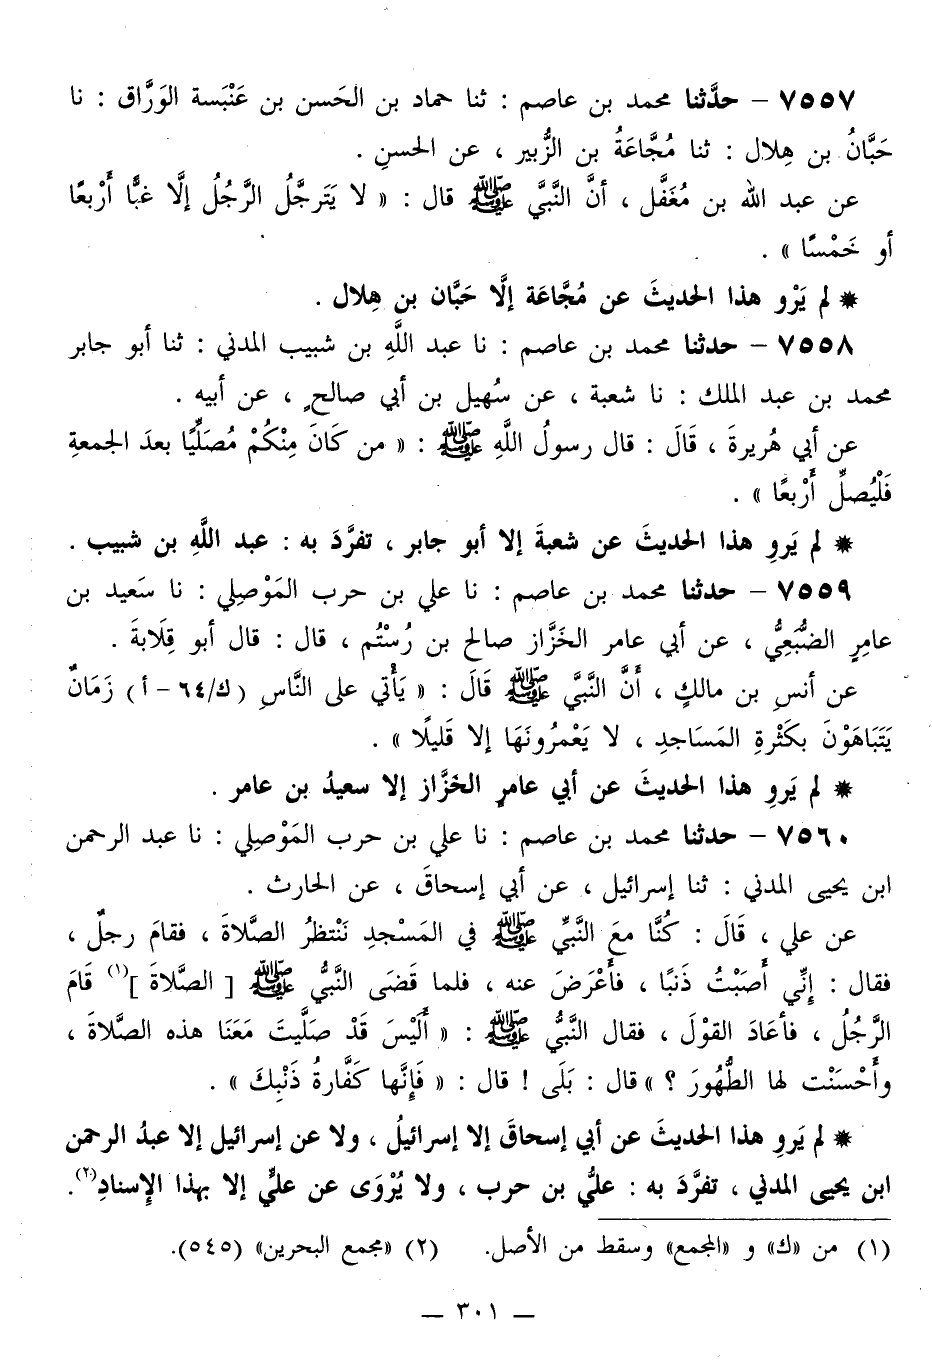 ٧٥٥٧ – حدَّثنا محمد بن عاصم : ثنا حماد بن الحَسن بن عَنْبَسة الوَرَّاق : نا
حَبَّانُ بن هِلال : ثنا مُجَّاعَةُ بن الزُّبير ، عن الحسنِ .
عن عبد الله بن مُغَفَّل ، أنَّ النَّبيَّ ﷺ قال : « لا يَتَرجَّلُ الرَّجُلُ إلَّا غبًّا أَرْبعًا
أو خَمْسًا » .
* لم يَرْو هذا الحديثَ عن مُجَّاعَة إلَّا حَبَّان بن هِلال .
٧٥٥٨ – حدثنا محمد بن عاصم : نا عبد اللَّهِ بن شبيب المدني : ثنا أبو جابر
محمد بن عبد الملك : نا شعبة ، عن سُهيل بن أبي صالحٍ ، عن أبيه .
عن أبي هُريرةَ ، قَالَ : قال رسولُ اللَّهِ ﷺ : « من كَانَ مِنْكُمْ مُصَلِّيًا بعدَ الجمعةِ
فَلْيُصلِّ أَرْبعًا » .
* لم يَروِ هذا الحديثَ عن شعبةَ إلا أبو جابر ، تفرَّدَ به : عبد اللَّهِ بن شبيب .
٧٥٥٩ – حدثنا محمد بن عاصم : نا علي بن حرب المَوْصِلِي : نا سَعيد بن
عامِرٍ الضُّبَعِيُّ ، عن أبي عامر الخَزَّاز صالح بن رُسْتُم ، قال : قال أبو قِلَابةَ .
عن أنسِ بن مالكٍ ، أَنَّ النَّبيَّ ﷺ قَالَ : « يَأْتي على النَّاسِ (ك/٦٤ – أ) زَمَانٌ
يَتَبَاهَوْنَ بكَثْرةِ المَسَاجدِ ، لا يَعْمُرُونَهَا إلا قَليلًا » .
* لم يَروِ هذا الحديثَ عن أبي عامرٍ الخَزَّاز إلا سعيدُ بن عامر .
٧٥٦٠ – حدثنا محمد بن عاصم : نا علي بن حرب المَوْصِلي : نا عبد الرحمن
ابن يحيى المدني : ثنا إسرائيل ، عن أبي إسحاقَ ، عن الحارث .
عن علي ، قَالَ : كُنَّا معَ النَّبيِّ ﷺ في المَسْجدِ نَنْتظرُ الصَّلاةَ ، فقامَ رجلٌ ،
فقال : إنِّي أَصَبْتُ ذَنبًا ، فأَعْرَضَ عنه ، فلما قَضَى النَّبيُّ ﷺ [ الصَّلاةَ ](١) قَامَ
الرَّجُلُ ، فأعَادَ القوْلَ ، فقال النَّبيُّ ﷺ : « أَلَيْسَ قَدْ صَلَّيتَ مَعَنَا هذه الصَّلاةَ ،
وأَحْسَنْت لها الطُّهُورَ ؟ » قال : بَلَى ! قال : « فَإنَّها كَفَّارةُ ذَنْبِكَ » .
* لم يَروِ هذا الحديثَ عن أبي إسحاقَ إلا إسرائيلُ ، ولا عن إسرائيل إلا عبدُ الرحمن
ابن يحيى المدني ، تفرَّدَ به : عليُّ بن حرب ، ولا يُرْوَى عن عليٍّ إلا بهذا الإسنادِ(٢).
(١) من «ك» و «المجمع» وسقط من الأصل. (٢) «مجمع البحرين» (٥٤٥).
— ٣٠١ —